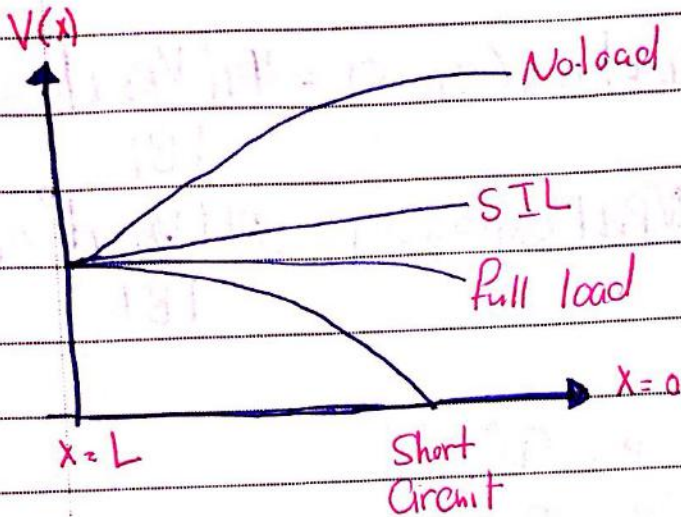 V(x)
No-load
SIL
full load
X=0
x=L
Short
Circuit